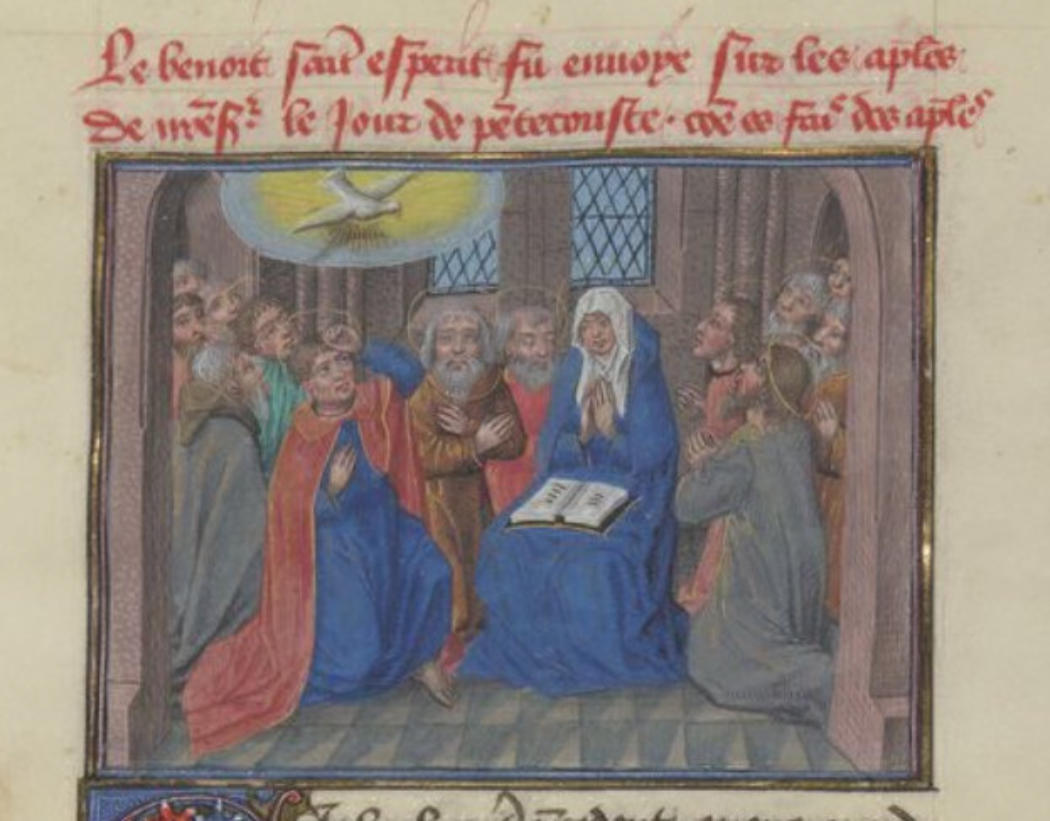 Le benoit sait esperit fu enuoye sur les aples
De nr̃e sr̃ le Jour de pẽtecouste. cõe es fais des aples